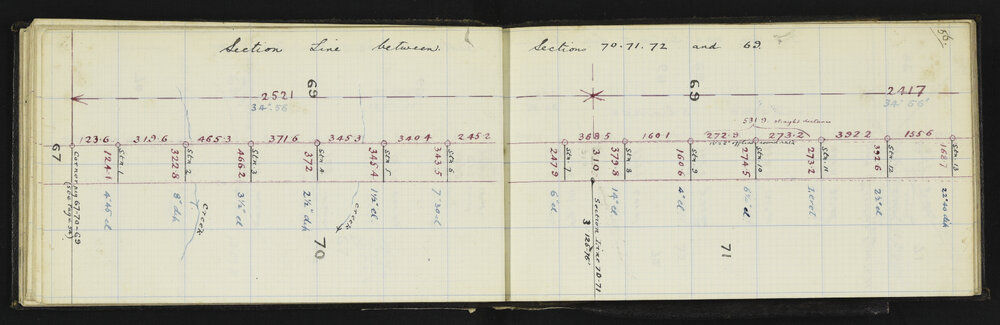 Section Line between Sections 70.71.72 and 69.
56.
69
69
2521
34°56'
2417
34°56'
531.9 straight distance
123.6 319.6 465.3 371.6 345.3 340.4 245.2
368.5 160.1 272.9 273.2 392.2 155.6
67
Corner peg 67-70-69
124.1 Stn. 1
322.8 Stn. 2
466.2 Stn. 3
372 Stn. 4
345.4 Stn. 5
343.5 Stn. 6
247.9 Stn. 7
310
379.8 Stn. 8
160.6 Stn. 9
274.5 Stn. 10
273.2 Stn. 11
392.6 Stn. 12
168.7 Stn. 13
4°45' el
8° dip
3½° el
2½° dip
1½° el
7°30' el
6° el
14° el
4° el
6½° el
Level
2½° el
22°40' dip
Creek
Creek
Section Line 70-71
70
71